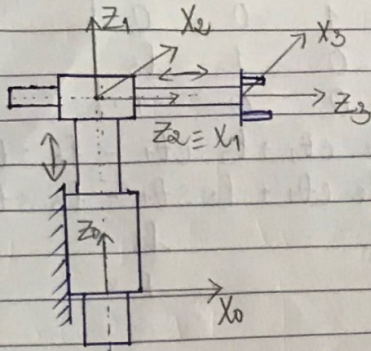 Z₁
X₂
X₃
Z₃
Z₂ ≡ X₁
Z₀
X₀